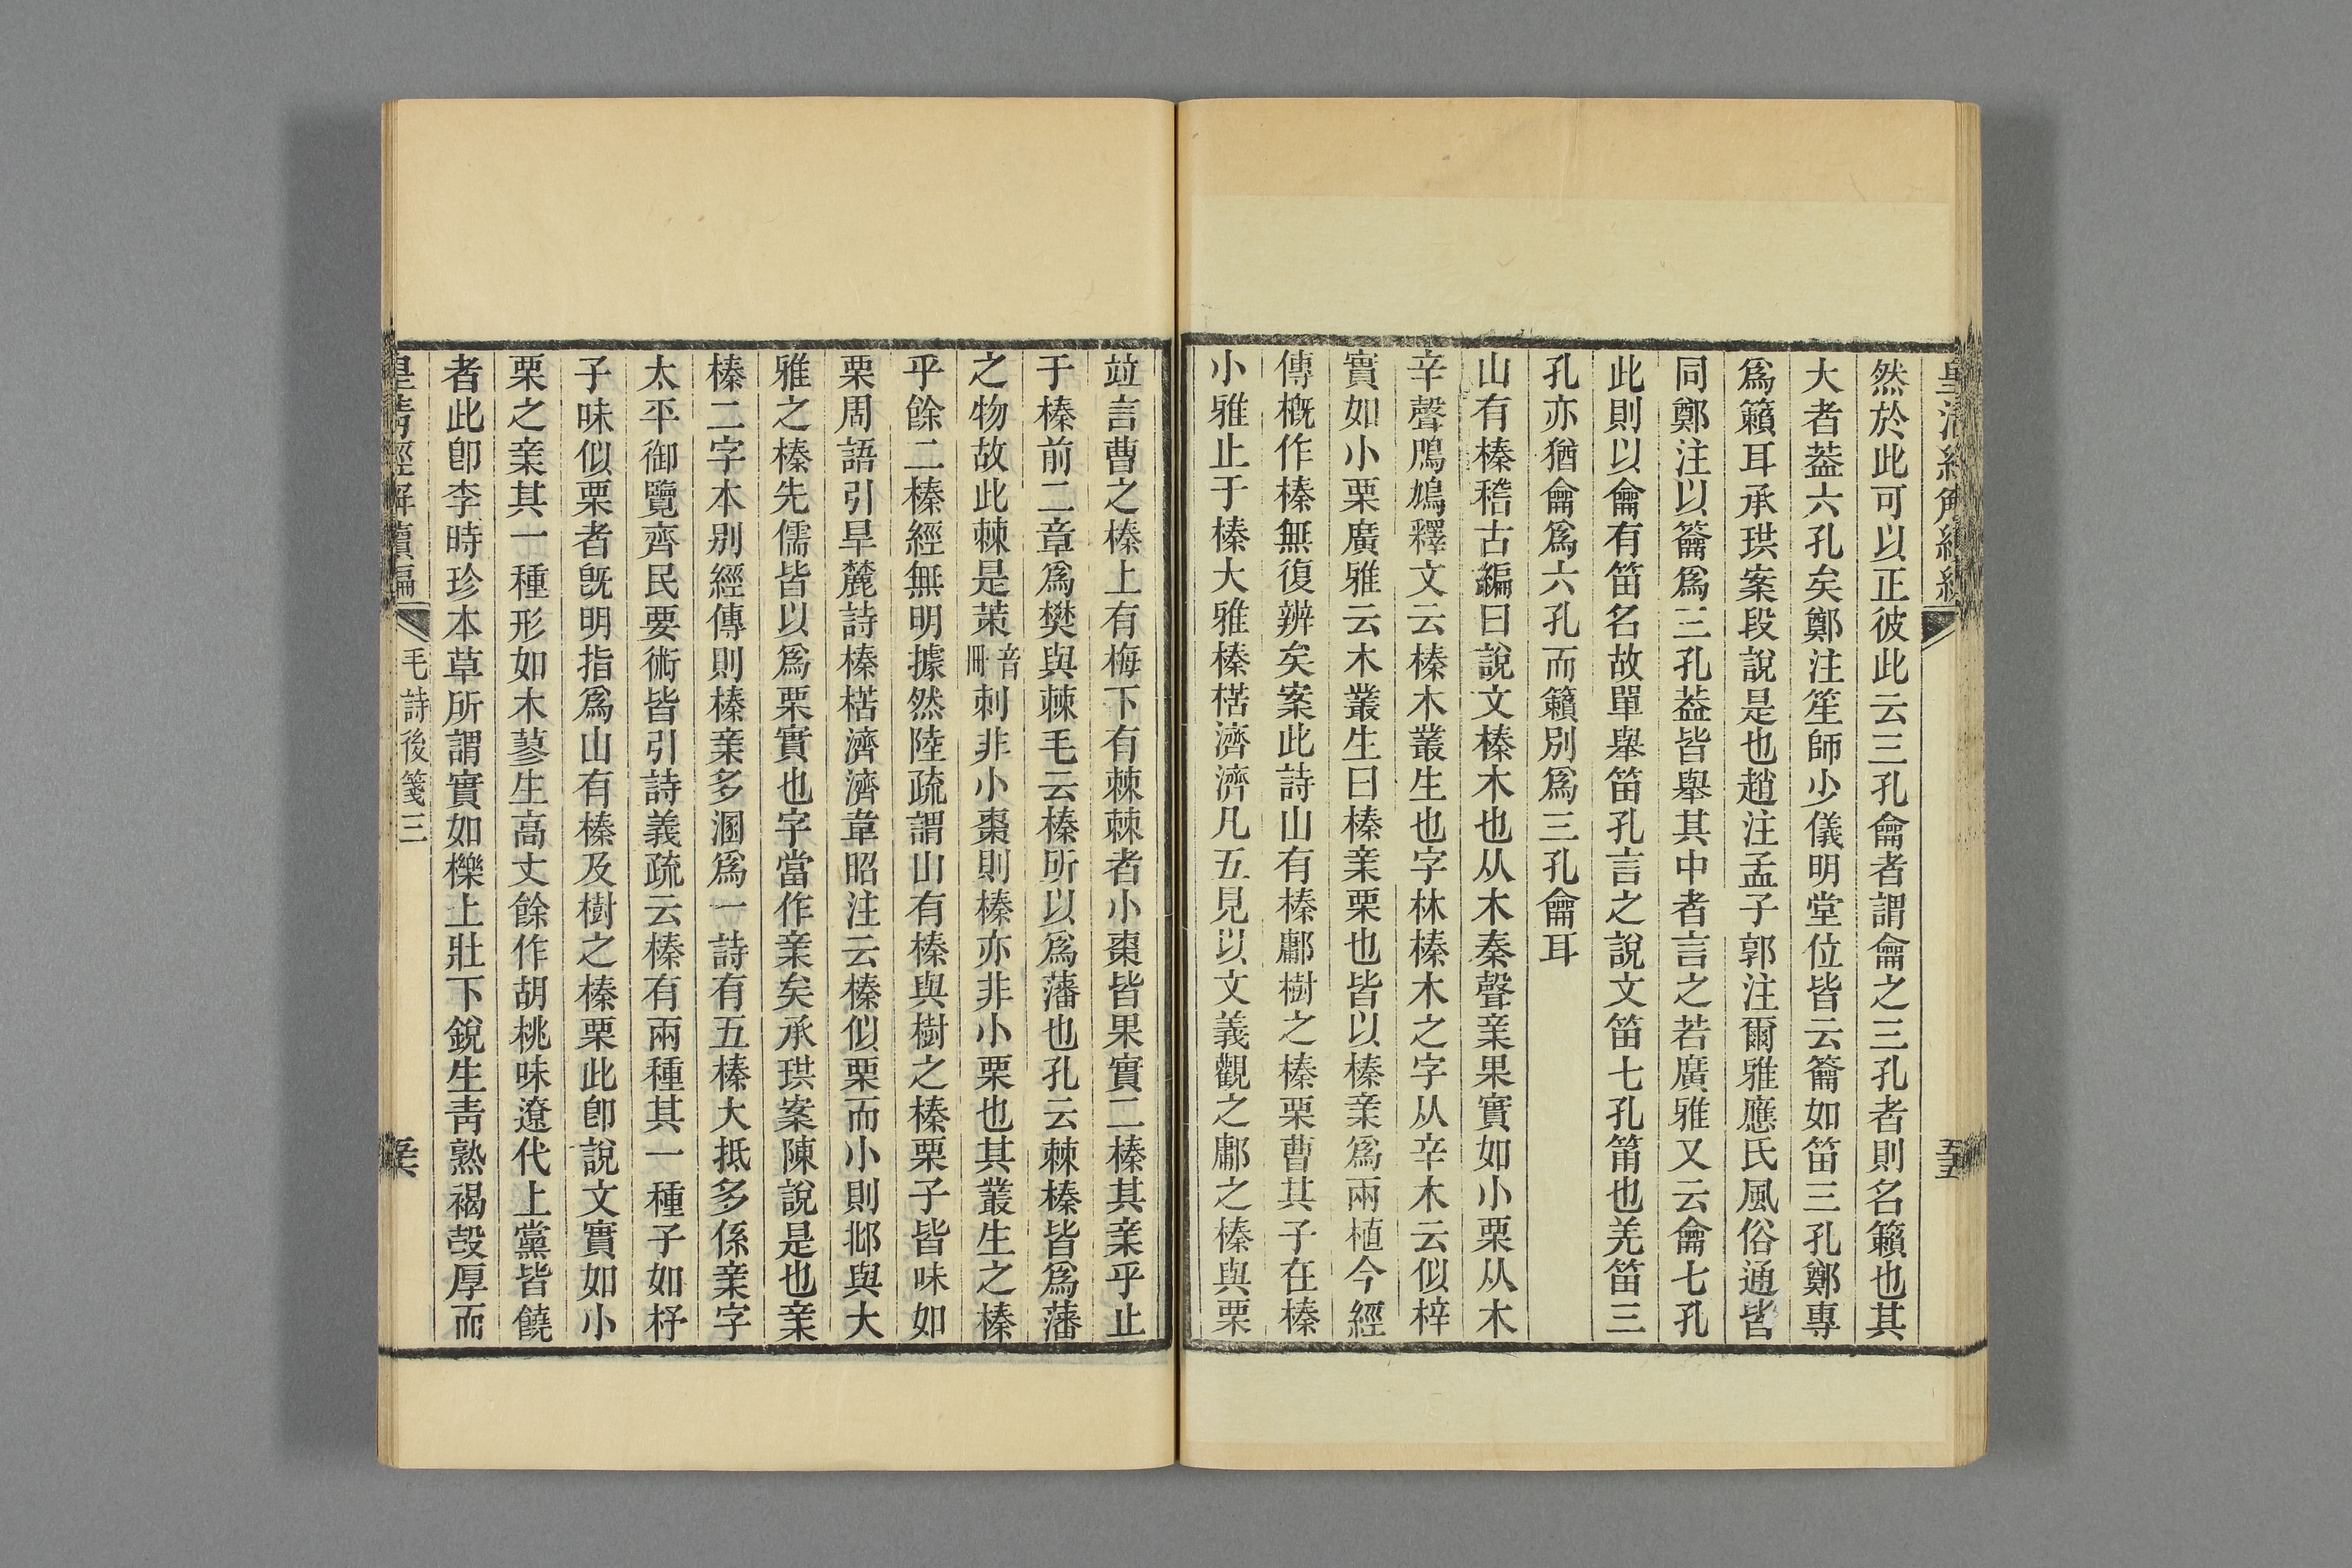 然於此可以正彼此云三孔龠者謂龠之三孔者則名籟也其
大者葢六孔矣鄭注笙師少儀明堂位皆云籥如笛三孔鄭專
爲籟耳承珙案段說是也趙注孟子郭注爾雅應氏風俗通皆
同鄭注以籥爲三孔葢皆舉其中者言之若廣雅又云龠七孔
此則以龠有笛名故單舉笛孔言之說文笛七孔筩也羌笛三
孔亦猶龠爲六孔而籟別爲三孔龠耳
山有榛稽古編曰說文榛木也从木秦聲亲果實如小栗从木
辛聲鳲鳩釋文云榛木叢生也字林榛木之字从辛木云似梓
實如小栗廣雅云木叢生曰榛亲栗也皆以榛亲爲兩植今經
傳槪作榛無復辨矣案此詩山有榛鄘樹之榛栗曹其子在榛
小雅止于榛大雅榛楛濟濟凡五見以文義觀之鄘之榛與栗
竝言曹之榛上有梅下有棘棘者小棗皆果實二榛其亲乎止
于榛前二章爲樊與棘毛云榛所以爲藩也孔云棘榛皆爲藩
之物故此棘是茦音冊刺非小棗則榛亦非小栗也其叢生之榛
乎餘二榛經無明據然陸疏謂山有榛與樹之榛栗子皆味如
栗周語引旱麓詩榛楛濟濟韋昭注云榛似栗而小則邶與大
雅之榛先儒皆以爲栗實也字當作亲矣承珙案陳說是也亲
榛二字本別經傳則榛亲多溷爲一詩有五榛大抵多係亲字
太平御覽齊民要術皆引詩義疏云榛有兩種其一種子如杼
子味似栗者旣明指爲山有榛及樹之榛栗此卽說文實如小
栗之亲其一種形如木蓼生高丈餘作胡桃味遼代上黨皆饒
者此卽李時珍本草所謂實如櫟上壯下銳生靑熟褐殼厚而
皇淸經解續編 毛詩後箋三